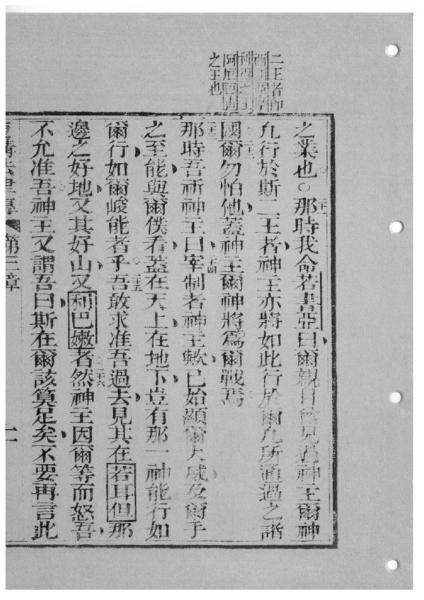 二王者卽
之王也
之業也○那時我命若書亞曰爾親目曾見神王爾神
凡行於斯二王者神王亦將如此行於爾凡所通過之諸
國爾勿怕他蓋神王爾神將爲爾戰焉
那時吾祈神王曰宰制者神王歟已始顯爾大威及爾手
之至能與爾僕看蓋在天上在地下豈有那一神能行如
爾行如爾峻能者乎吾敢求准吾過去見其在若耳但那
邊之好地又其好山又利巴嫩者然神王因爾等而怒吾
不允准吾神王又謂吾曰斯在爾該算足矣不要再言此
第三章